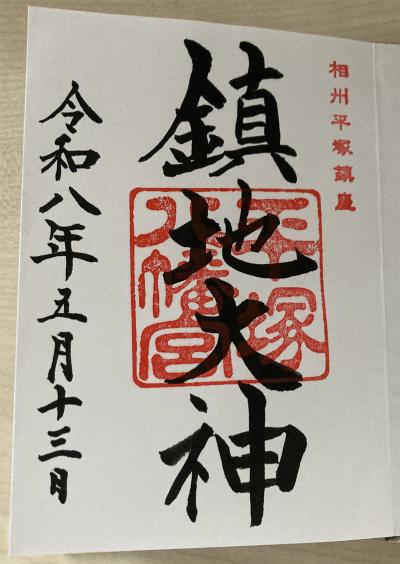 相州平塚鎮座
鎮地大神
平塚
八幡宮
令和八年五月十三日